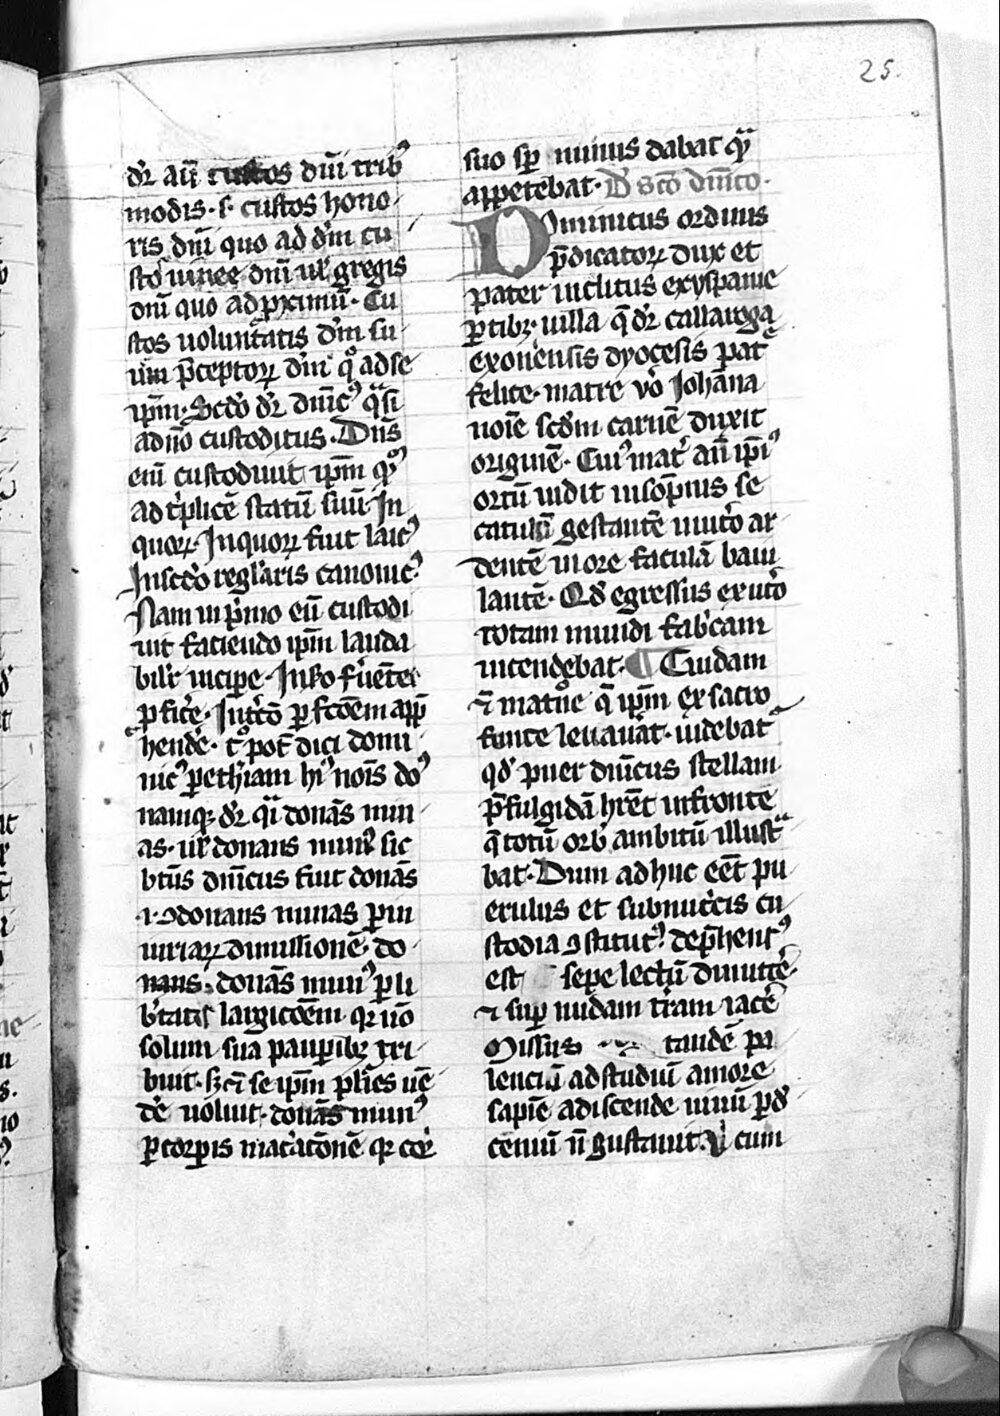 25.
dr̄ aut̄ custos dn̄i trib⁹
modis · s · custos hono
ris dn̄i quo ad dm̄ cu
stos uinee dn̄i ul̄ gregis
dn̄i quo ad ꝓximū · Cu
stos uoluntatis dn̄i su
p̄ceptoꝝ dn̄i qͦ ad se
ip̄m · Scd̄o dr̄ dn̄ic⁹ qᵃsi
a dn̄o custoditus · Dn̄s
eni custodiuit ip̄m
ad tͥplicē statū suū · In
quoꝝ · In quoꝝ fuit laic⁹
In scd̄o regl̄aris canonic⁹
Nam in pͥmo eū custodi
uit faciendo ip̄m lauda
bilr̄ incipe · In scd̄o feruēter
ꝓficē · In tcͥo ꝑfcōem app̄
hendē · tͦ pōt dici domi
nic⁹ ꝑ ethiam hͥ nois do⁹
namqꝫ dr̄ qᵃi donās min
as · ul̄ donans mun⁹ sic
bt̄us dn̄icus fuit donās
· 1 · donans minas ꝑ in
iuriaꝝ dimissionē · do
nans · donās mun⁹ ꝑ li
b̄tatis largicōem qꝛ nō
solum sua pauꝑibꝫ tri
buit · sꝫ ⁊ se ip̄m pl̄ies uē
dē uoluit · donās mun⁹
ꝑ corꝑis macͥatōnē qꝛ cor
suo sꝑ minus dabat qᵃ
appetebat · D̄ sc̄o dn̄ico ·
Dominicus ordinis
p̄dicatoꝝ dux et
pater inclitus ex yspanie
ꝑtibꝫ uilla q̄ dr̄ callaroga
exoniensis dyocesis patͤ
felice · matre ūo Iohāna
noīe scd̄m carnē duxit
originē · Cui⁹ mat̄ an̄ ip̄i⁹
ortū uidit in sōpnus se
catulū gestantē in utͦo ar
dentē in ore faculā baiu
lantē · Qd̄ egressus ex utͦo
totam mundi fabͥcam
incendebat · ¶ Cuidam
⁊ matͦne q̄ ip̄m ex sacro
fonte leuauāt · uidebat
qd̄ puer dn̄icus stellam
p̄fulgidā hr̄et in fronte
q̄ totū orb̄ ambitū illustᵃ
bat · Dum adhuc eēt pu
erulus et sub nutͥcis cu
stodia ꝯstitut⁹ dep̄hens⁹
est sepe lectū dimittē ·
⁊ suꝑ nudam tr̄am iacē
Missus tandē pa
lenciā ad studiū amore
sapīe adiscende uinū ꝑ de
cenniū n̄ gustauit · cum